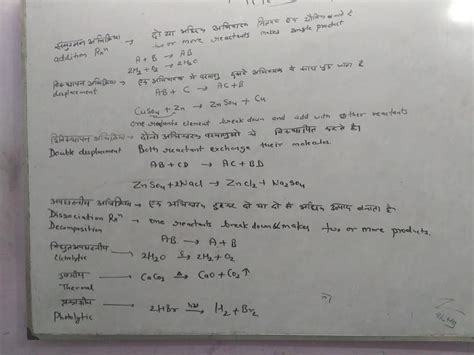 संयुग्मन अभिक्रिया → दो या अधिक अभिकारक मिलकर एक
addition Rxn two or more reactants makes single product
A + B → AB
2H₂ + O₂ → 2H₂O
विस्थापन अभिक्रिया → एक अभिकारक के परमाणु दूसरे अभिकारक के साथ जुड़ जाता है
displacement
AB + C → AC + B
CuSO₄ + Zn → ZnSO₄ + Cu
one reactants element break down and add with other reactants
द्विविस्थापन अभिक्रिया → दोनों अभिकारक परमाणुओं को विस्थापित करते है।
Double displacement Both reactant exchange their molecules
AB + CD → AC + BD
ZnSO₄ + 2NaCl → ZnCl₂ + Na₂SO₄
अपघटनीय अभिक्रिया → एक अभिकारक टूटकर दो या दो से अधिक उत्पाद बनाता है।
Dissociation Rxn → one reactants break down & makes two or more products.
Decomposition
AB → A + B
विद्युतअपघटनीय → 2H₂O → 2H₂ + O₂
ऊष्मीय → CaCO₃ Δ→ CaO + CO₂↑
Thermal
→ 2HBr hν→ H₂ + Br₂
Photolytic